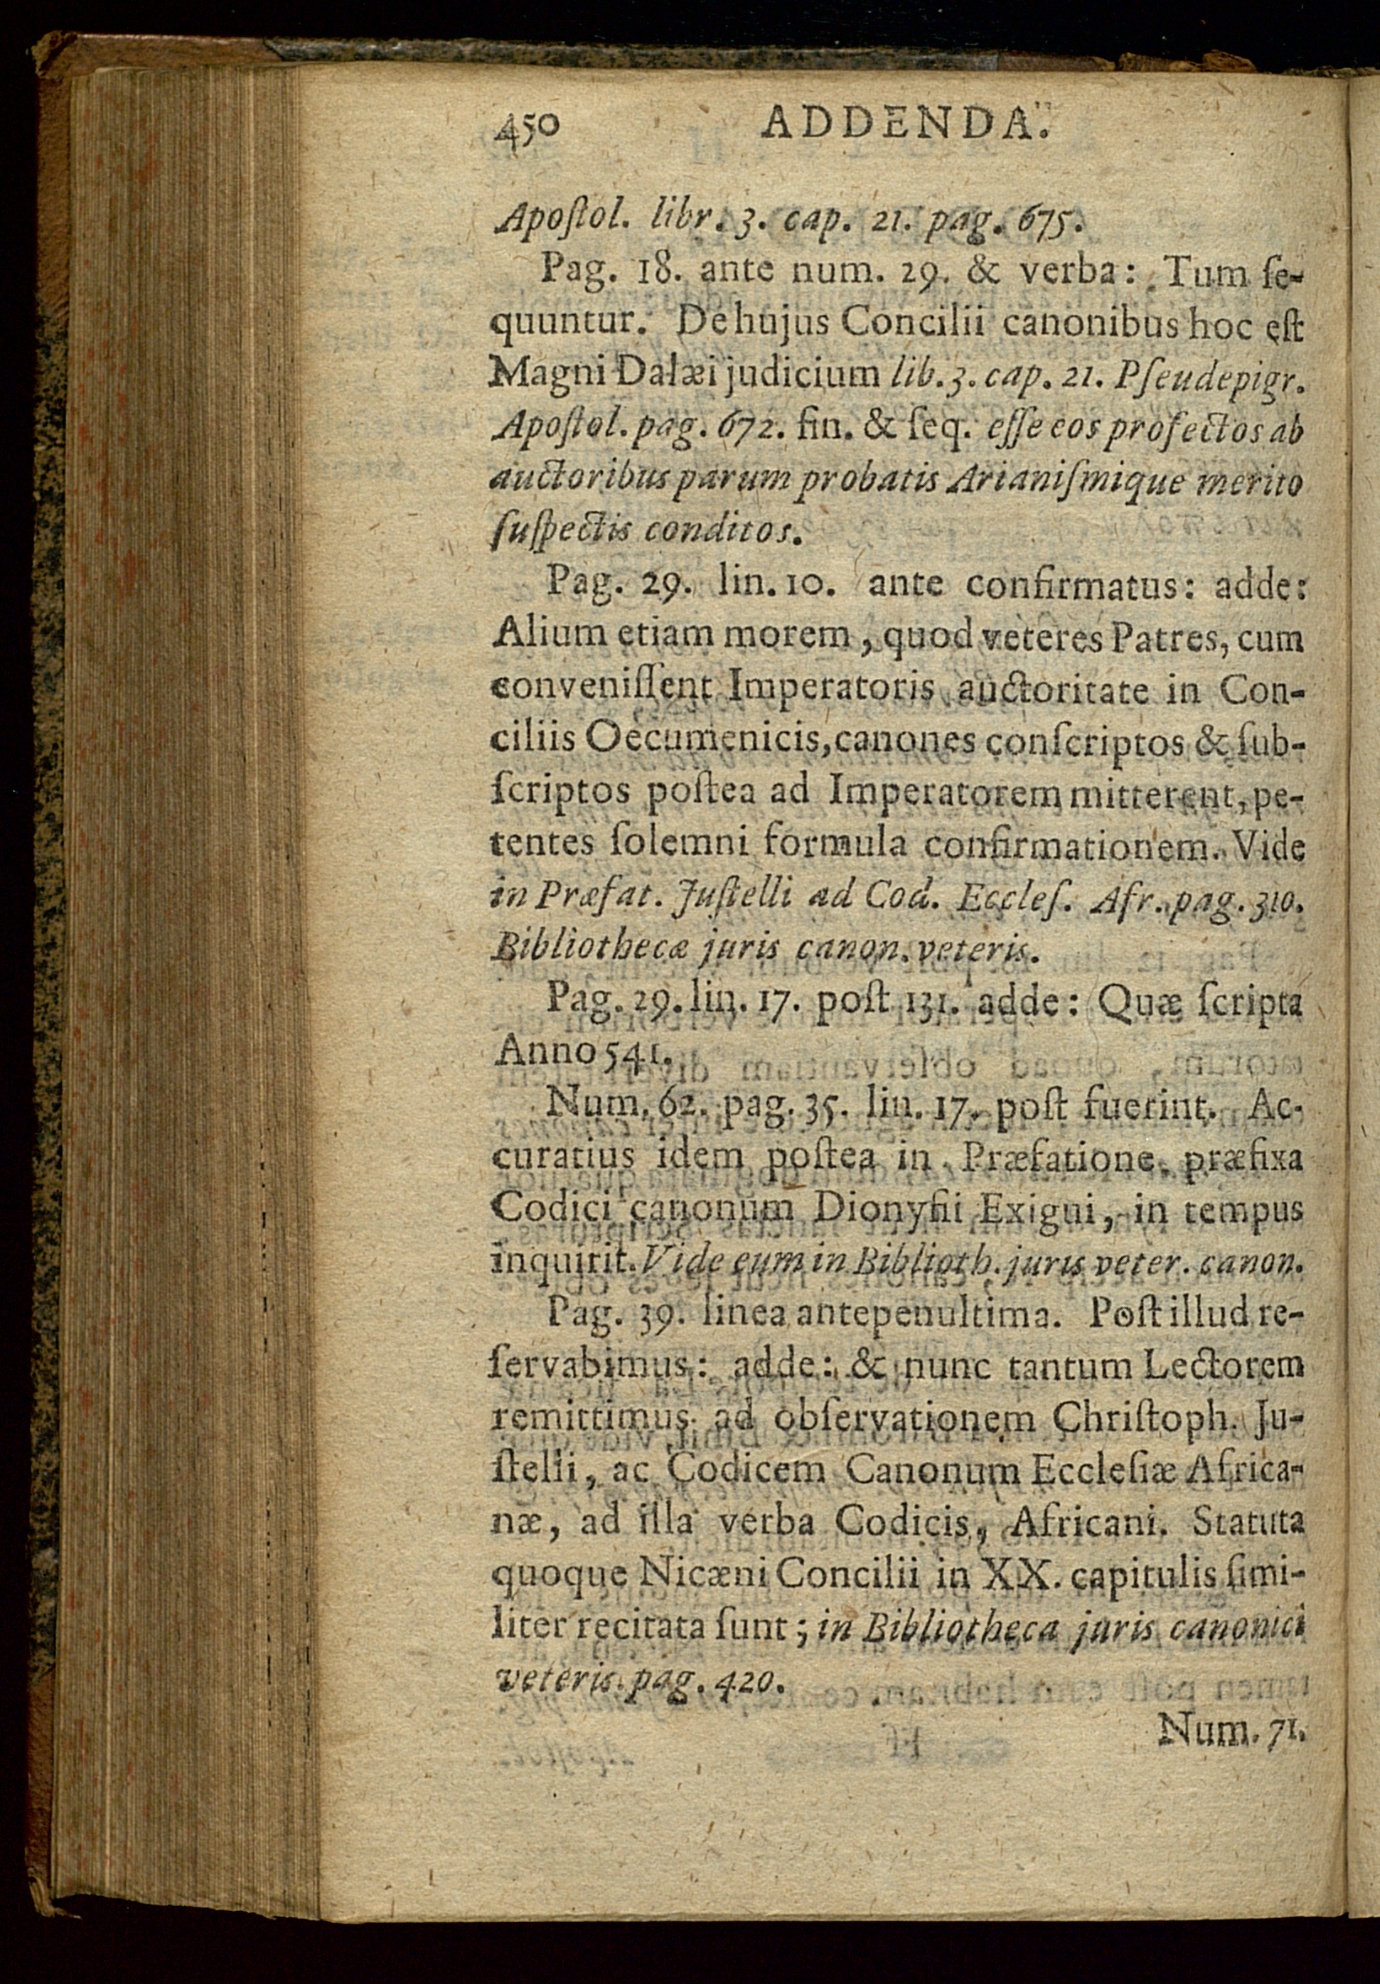 450 ADDENDA.
Apoſtol. libr. 3. cap. 21. pag. 675.
Pag. 18. ante num. 29. & verba: Tum ſe-
quuntur. De hujus Concilii canonibus hoc eſt
Magni Dalæi judicium lib. 3. cap. 21. Pſeudepigr.
Apoſtol. pag. 672. fin. & ſeq. eſſe eos profectos ab
auctoribus parum probatis Arianiſmique merito
ſuſpectis conditos.
Pag. 29. lin. 10. ante confirmatus: adde:
Alium etiam morem, quod veteres Patres, cum
conveniſſent Imperatoris auctoritate in Con-
ciliis Oecumenicis, canones conſcriptos & ſub-
ſcriptos poſtea ad Imperatorem mitterent, pe-
tentes ſolemni formula confirmationem. Vide
in Præfat. Juſtelli ad Cod. Eccleſ. Afr. pag. 310.
Bibliothecæ juris canon. veteris.
Pag. 29. lin. 17. poſt 131. adde: Quæ ſcripta
Anno 541.
Num. 62. pag. 35. lin. 17. poſt fuerint. Ac-
curatius idem poſtea in Præfatione præfixa
Codici canonum Dionyſii Exigui, in tempus
inquirit. Vide eum in Biblioth. juris veter. canon.
Pag. 39. linea antepenultima. Poſt illud re-
ſervabimus: adde: & nunc tantum Lectorem
remittimus ad obſervationem Chriſtoph. Ju-
ſtelli, ac Codicem Canonum Eccleſiæ Africa-
næ, ad illa verba Codicis, Africani. Statuta
quoque Nicæni Concilii in XX. capitulis ſimi-
liter recitata ſunt; in Bibliotheca juris canonici
veteris pag. 420.
Num. 71.